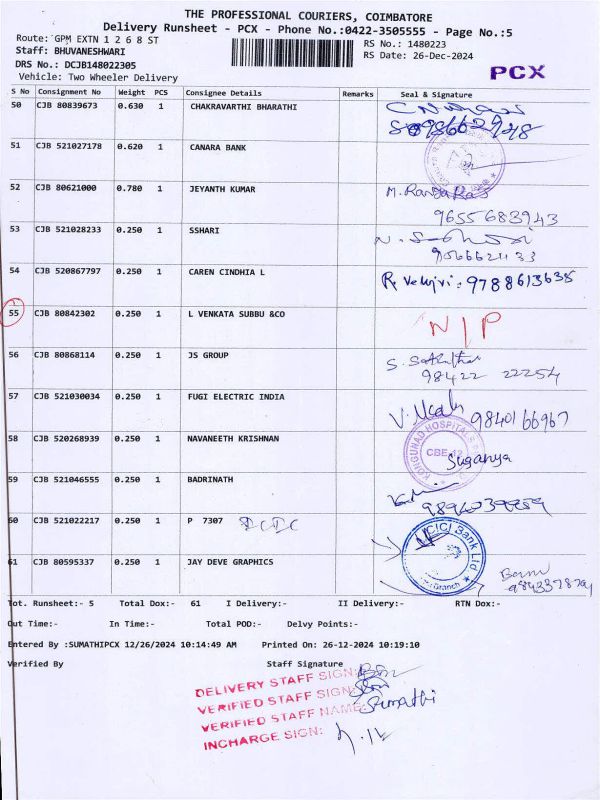 THE PROFESSIONAL COURIERS, COIMBATORE
Delivery Runsheet - PCX - Phone No.:0422-3505555 - Page No.:5
Route: GPM EXTN 1 2 6 8 ST
RS No.: 1480223
Staff: BHUVANESHWARI
RS Date: 26-Dec-2024
DRS No.: DCJB148022305
Vehicle: Two Wheeler Delivery
PCX
S No Consignment No Weight PCS Consignee Details Remarks Seal & Signature
50 CJB 80839673 0.630 1 CHAKRAVARTHI BHARATHI
51 CJB 521027178 0.620 1 CANARA BANK
52 CJB 80621000 0.780 1 JEYANTH KUMAR
9655683943
53 CJB 521028233 0.250 1 SSHARI
54 CJB 520867797 0.250 1 CAREN CINDHIA L
9788613635
55 CJB 80842302 0.250 1 L VENKATA SUBBU &CO N/P
56 CJB 80868114 0.250 1 JS GROUP
98422 22254
57 CJB 521030034 0.250 1 FUGI ELECTRIC INDIA
9840166967
58 CJB 520268939 0.250 1 NAVANEETH KRISHNAN
KONGUNAD HOSPITALS
CBE-12
Suganya
59 CJB 521046555 0.250 1 BADRINATH
60 CJB 521022217 0.250 1 P 7307
ICICI Bank Ltd.
Branch
61 CJB 80595337 0.250 1 JAY DEVE GRAPHICS
Tot. Runsheet:- 5 Total Dox:- 61 I Delivery:- II Delivery:- RTN Dox:-
Out Time:- In Time:- Total POD:- Delvy Points:-
Entered By :SUMATHIPCX 12/26/2024 10:14:49 AM Printed On: 26-12-2024 10:19:10
Verified By Staff Signature
DELIVERY STAFF SIGN:
VERIFIED STAFF SIGN:
VERIFIED STAFF NAME: Sumathi
INCHARGE SIGN: